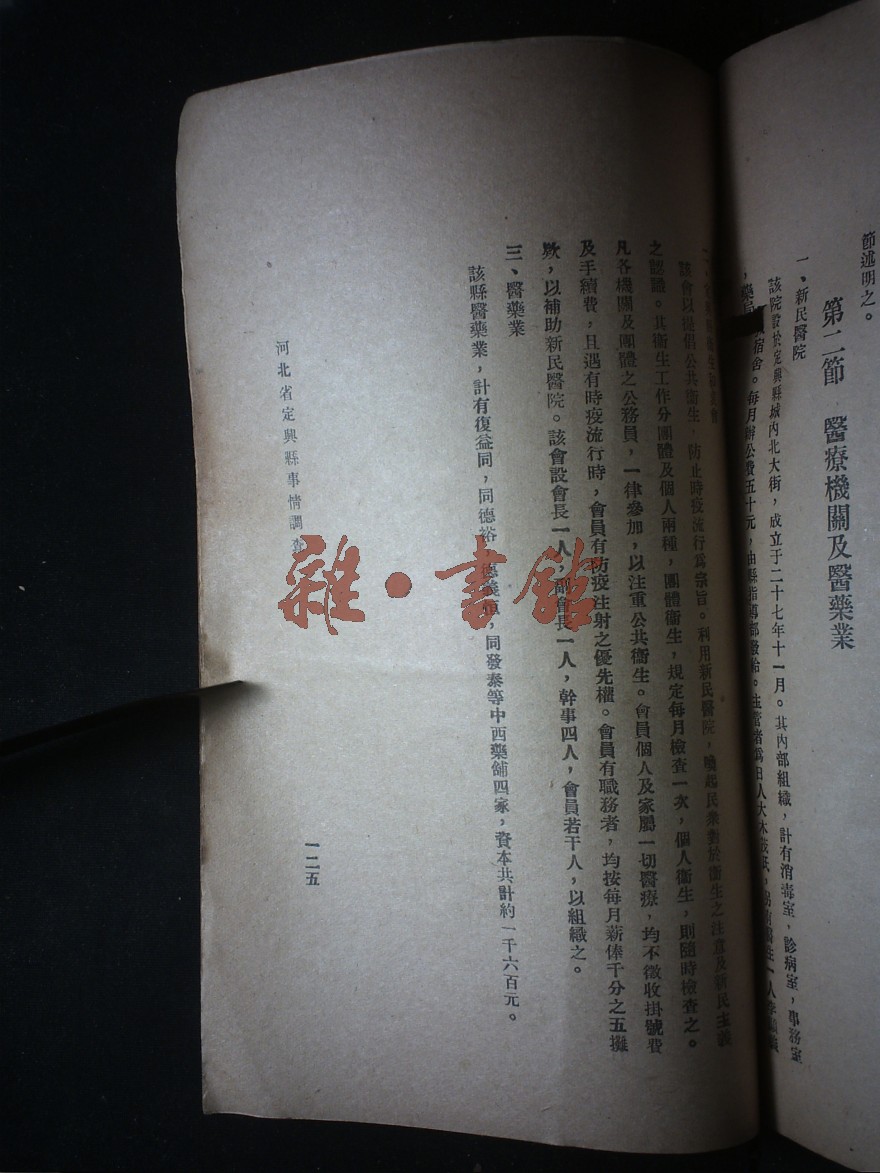 節述明之。
第二節 醫療機關及醫藥業
一、新民醫院
該院設於定興縣城內北大街，成立于二十七年十一月。其內部組織，計有消毒室，診病室，事務室
，藥局 宿舍。每月辦公費五十元，由縣指導部發給。主管者爲日人大木 氏，
該會以提倡公共衞生，防止時疫流行爲宗旨。利用新民醫院，喚起民衆對於衞生之注意及新民主義
之認識。其衞生工作分團體及個人兩種，團體衞生，規定每月檢查一次，個人衞生，則隨時檢查之。
凡各機關及團體之公務員，一律參加，以注重公共衞生。會員個人及家屬一切醫療，均不徵收掛號費
及手續費，且遇有時疫流行時，會員有防疫注射之優先權。會員有職務者，均按每月薪俸千分之五攤
欵，以補助新民醫院。該會設會長一人，副會長一人，幹事四人，會員若干人，以組織之。
三、醫藥業
該縣醫藥業，計有復益同，同德裕，德義 ，同發泰等中西藥舖四家，資本共計約一千六百元。
河北省定興縣事情調查
一二五
雜·書館